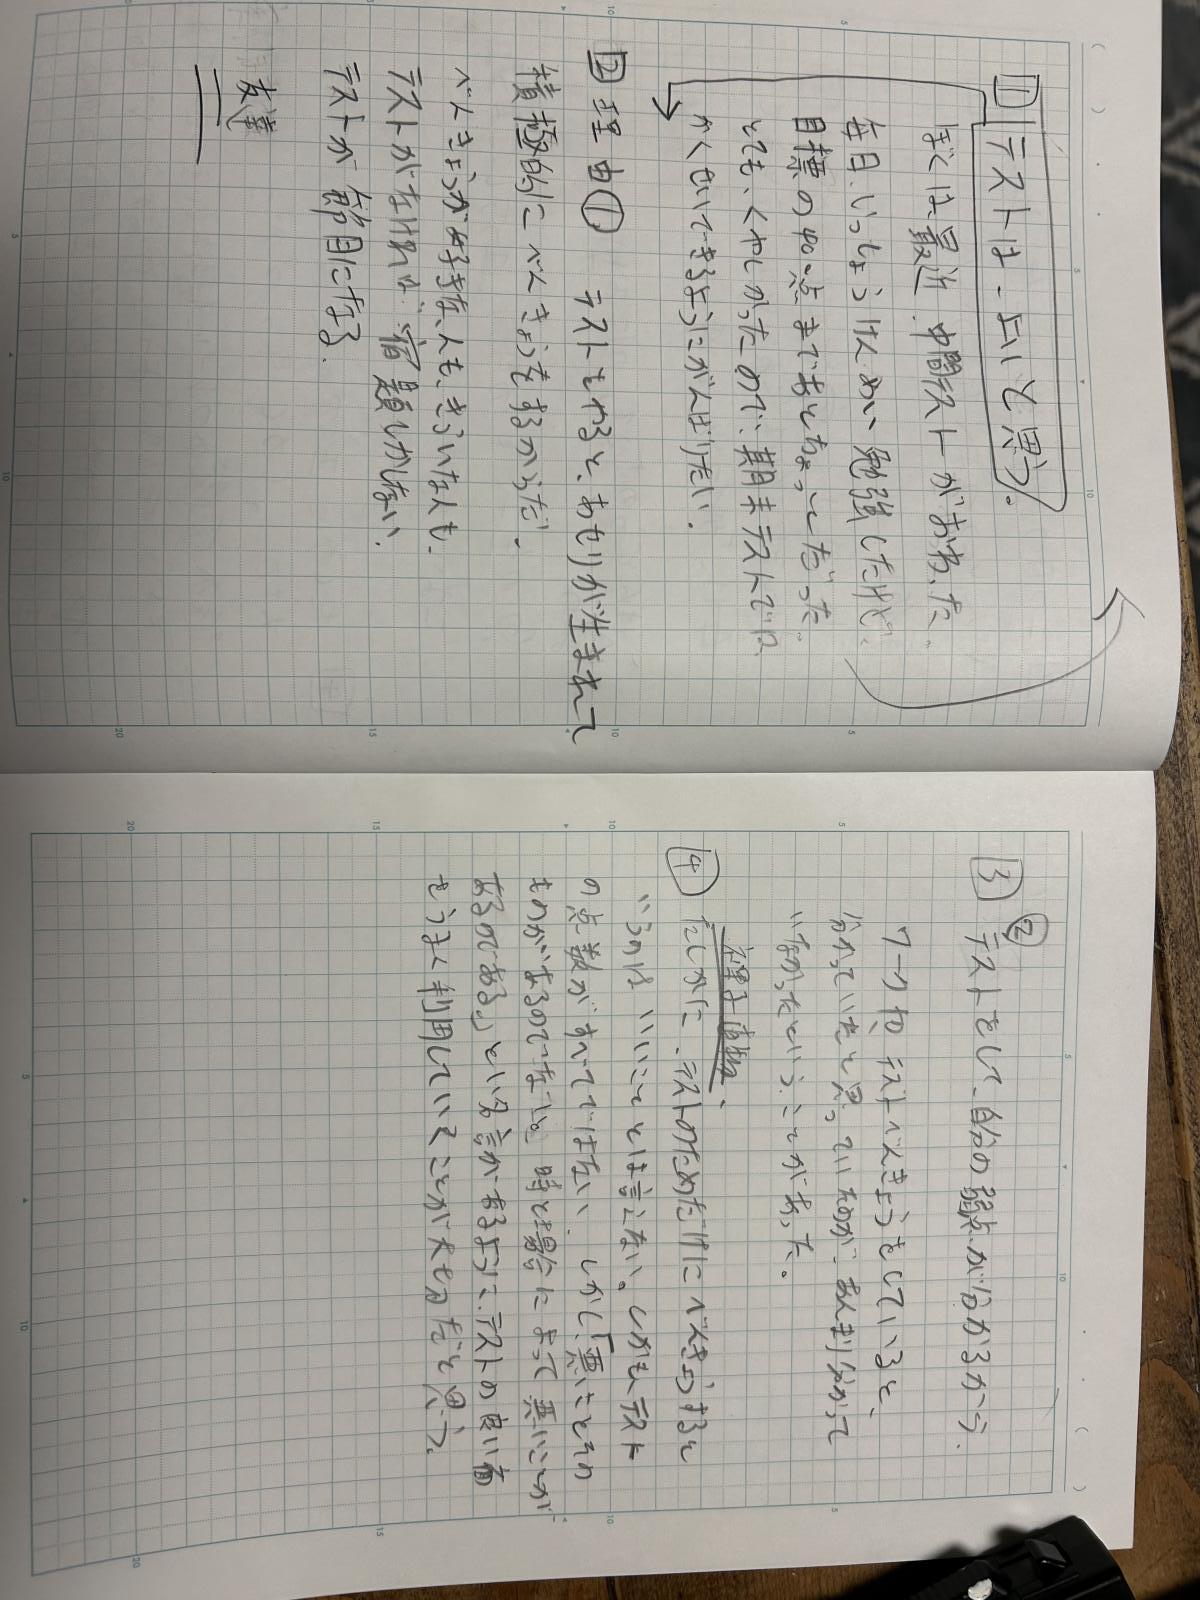 1 テストは、よいと思う。
ぼくは、最近、中間テストがおわった。
毎日、いっしょうけんめい勉強したけど、
目標の40点まであとちょっとだった。
とても、くやしかったので、期末テストでは
かくせいできるようにがんばりたい。
2 理由① テストをやると、あせりが生まれて
積極的にべんきょうをするからだ。
べんきょうが好きな人も、きらいな人も、
テストがなければ、宿題しかしない。
テストが節目になる。
友達
3 ② テストをして、自分の弱点が分かるから、
ワークや、テストべんきょうをしていると、
分かっていたと思っていたのが、あんまり分かって
いなかったという、ことがあった。
理子 植物、
4 たしかに、テストのためだけにべんきょうすると
いうのは いいこととは言えない。しかも、テスト
の点数がすべてではない、しかし、「悪いことその
ものがあるのでない。時と場合によって悪いことが
あるのである。」という名言があるように、テストの良い面
をうまく利用していくことが大切だと思う。